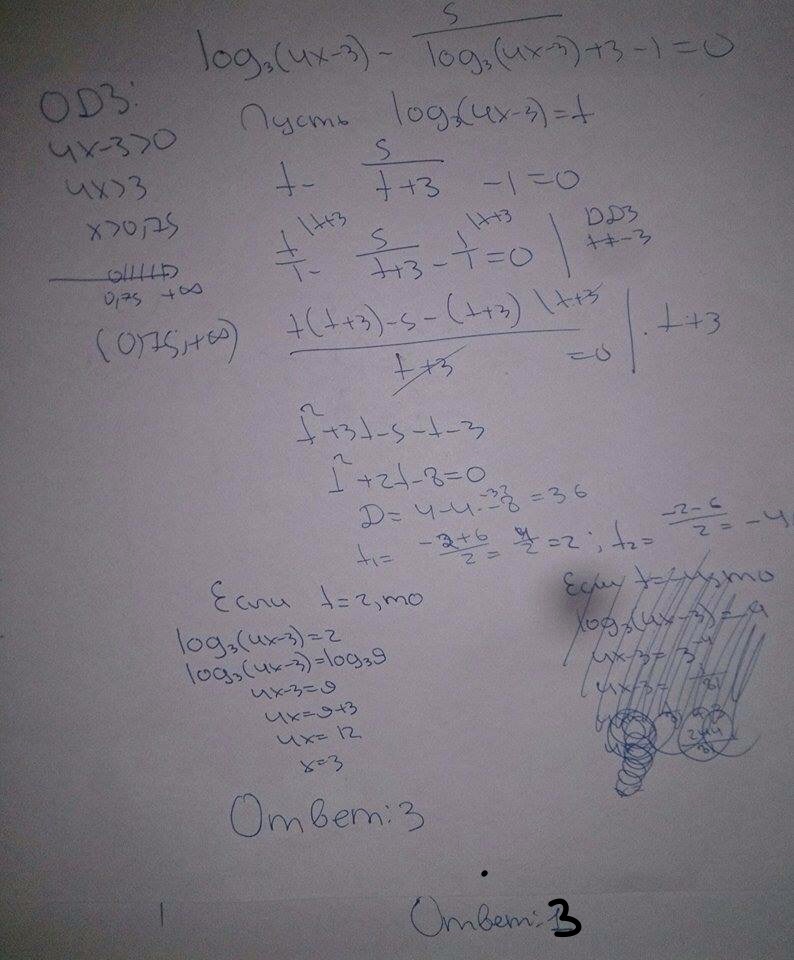 log₃(4x-3) - 5/(log₃(4x-3)+3) - 1 = 0
ОДЗ:
4x-3>0
4x>3
x>0,75
0,75 +∞
(0,75;+∞)
Пусть log₃(4x-3)=t
t - 5/(t+3) - 1 = 0
t/1 \t+3 - 5/(t+3) - 1/1 \t+3 = 0 | ОДЗ t≠-3
(t(t+3)-5-(t+3))/(t+3) \t+3 = 0 | · t+3
t²+3t-5-t-3
t²+2t-8=0
D=4-4·-8=36
t₁= (-2+6)/2 = 4/2 = 2; t₂= (-2-6)/2 = -4
Если t=2, то
log₃(4x-3)=2
log₃(4x-3)=log₃9
4x-3=9
4x=9+3
4x=12
x=3
Ответ: 3
Если t=-4, то
log₃(4x-3)=-4
4x-3=3⁻⁴
4x-3=1/81
Ответ: 3